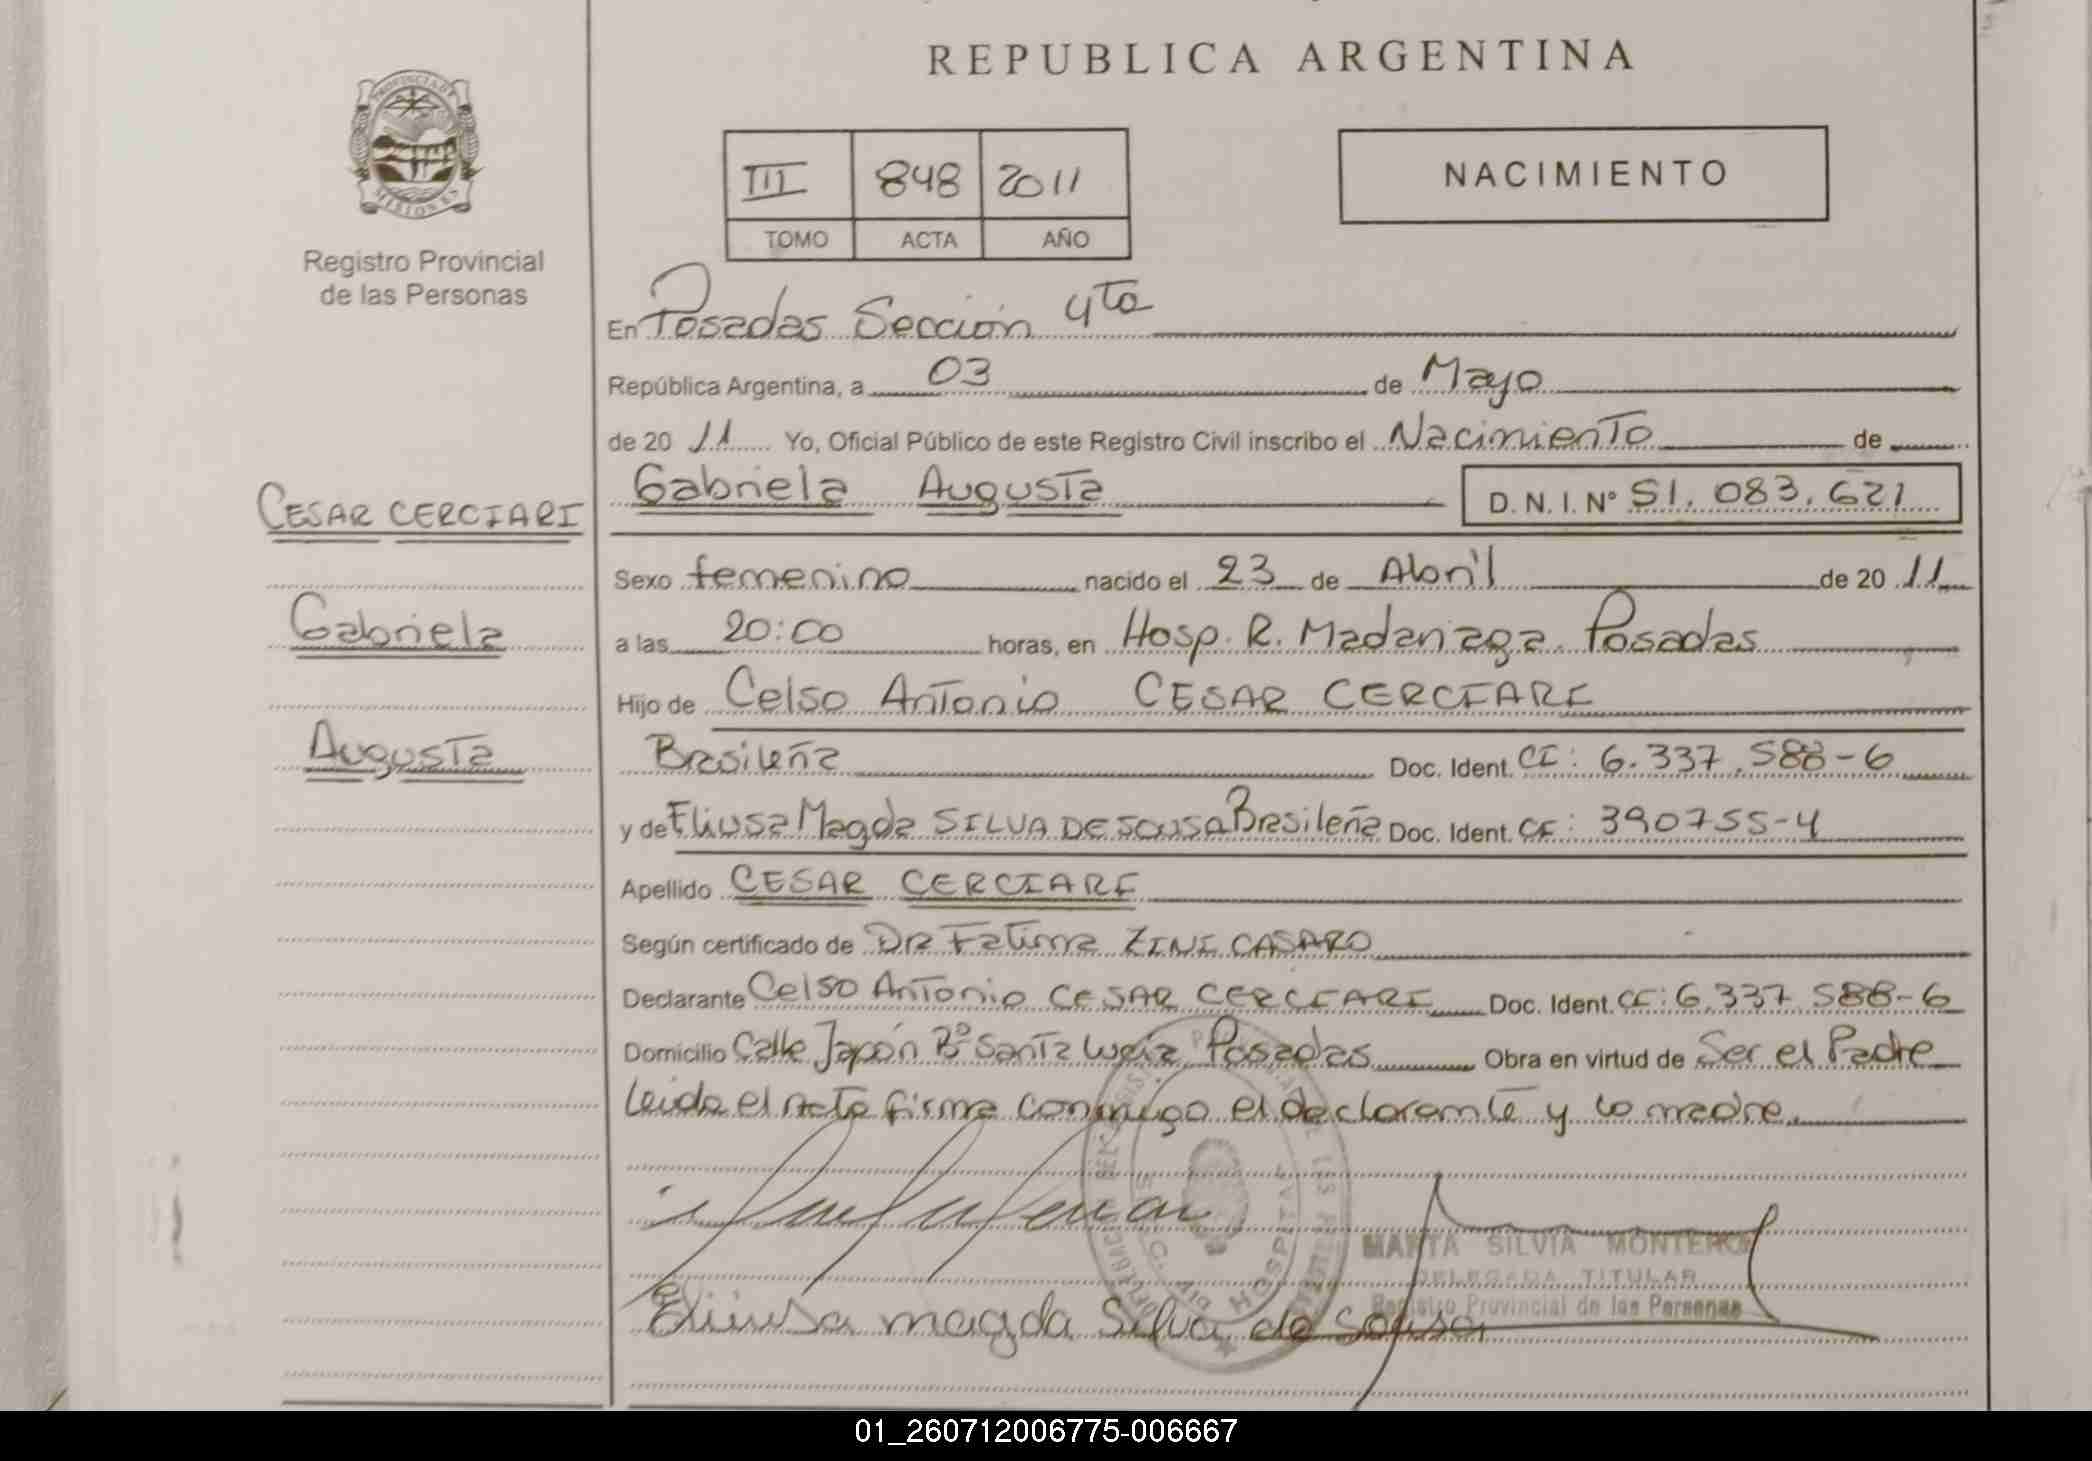 REPUBLICA ARGENTINA
PROVINCIA DE
MISIONES
Registro Provincial
de las Personas
III 848 2011
TOMO ACTA AÑO
NACIMIENTO
En Posadas Sección 4ta
República Argentina, a 03 de Mayo
de 20 11 Yo, Oficial Público de este Registro Civil inscribo el Nacimiento de
Gabriela Augusta D. N. I. N° 51.083.621
CESAR CERCIARI
Sexo femenino nacido el 23 de Abril de 20 11
Gabriela
a las 20:00 horas, en Hosp. R. Madariaga. Posadas
Hijo de Celso Antonio CESAR CERCIARI
Augusta
Brasileña Doc. Ident. CI: 6.337.588-6
y de Eliusa Magda SILVA DE SOUSA Brasileña Doc. Ident. CI: 390755-4
Apellido CESAR CERCIARI
Según certificado de Dra Fatima ZINI CASARO
Declarante Celso Antonio CESAR CERCIARI Doc. Ident. CI: 6.337.588-6
Domicilio Calle Japón Bº Santa Lucia Posadas Obra en virtud de Ser el Padre
Leida el acta firma conmigo el declarante y la madre.
HOSPITAL
MARTA SILVIA MONTERO
DELEGADA TITULAR
Registro Provincial de las Personas
Eliusa magda Silva de Sousa
01_260712006775-006667